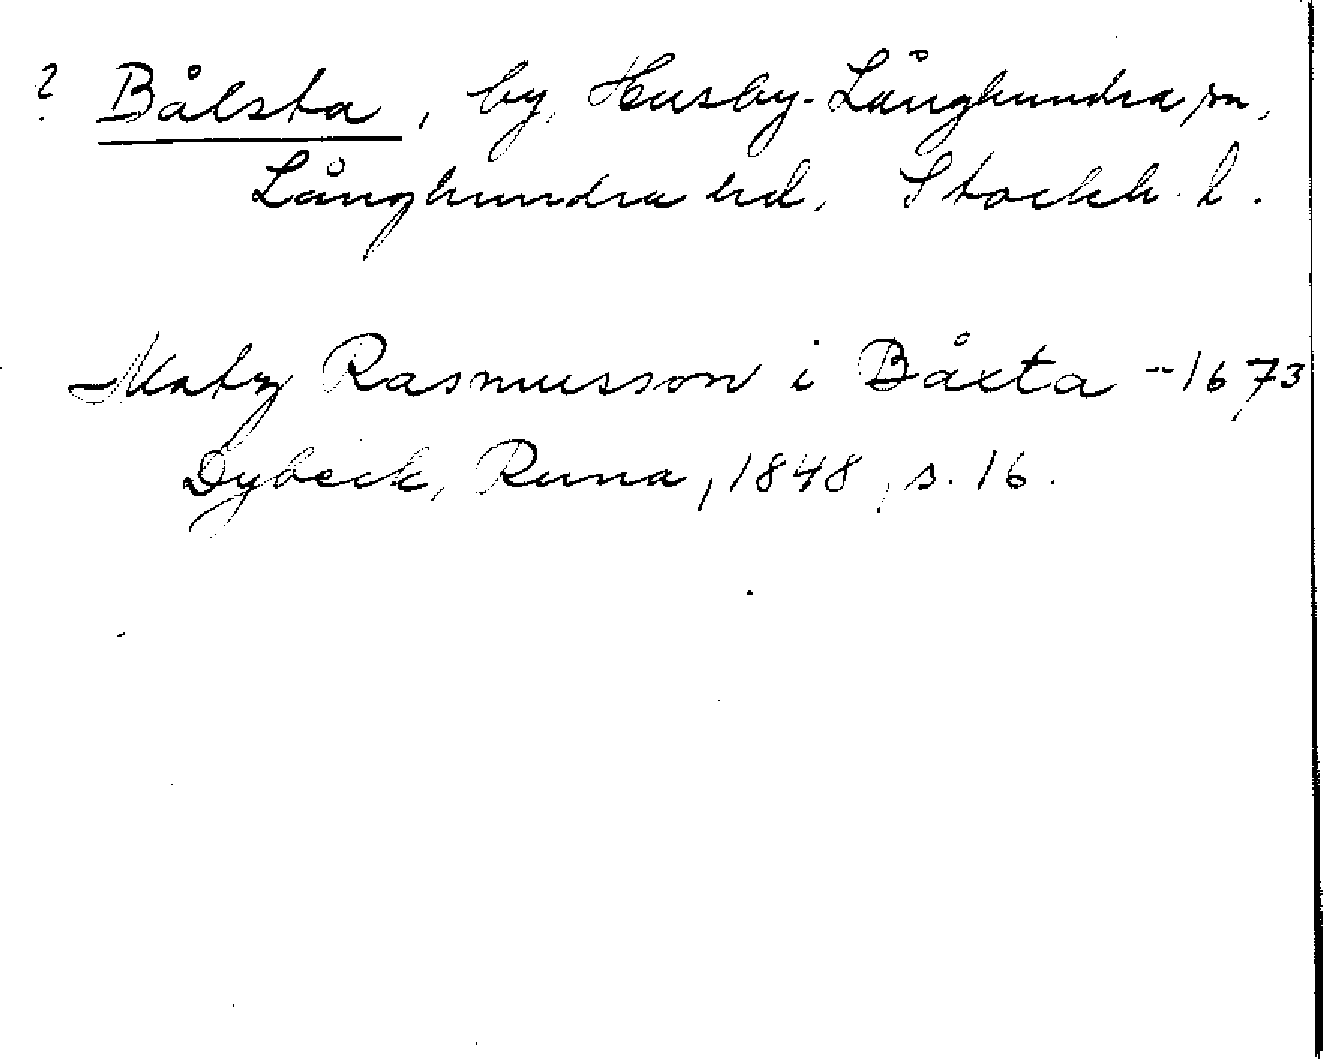 ? Bålsta, by, Husby-Långhundra sn,
Långhundra hd, Stockh. l.
Matz Rasmusson i Båxta - 1673
Dybeck, Runa, 1848, s. 16.